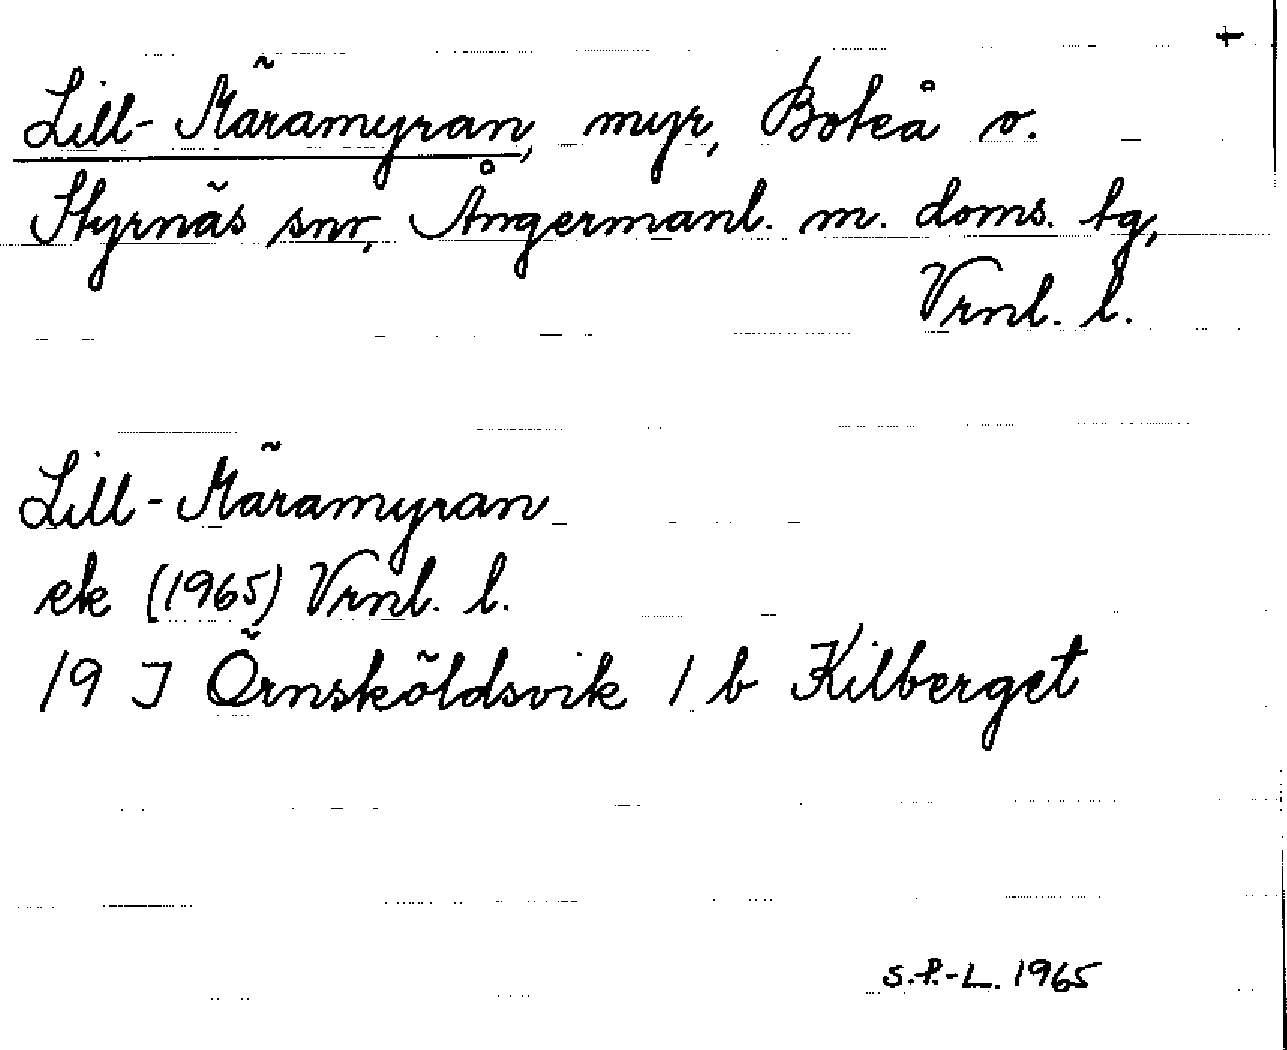 Lill-Märamyran, myr, Boteå o.
Styrnäs snr, Ångermanl. m. doms. tg,
Vrnl. l.
Lill-Märamyran
ek (1965) Vrnl. l.
19 J Örnsköldsvik 1 b Kilberget
S.P.-L. 1965